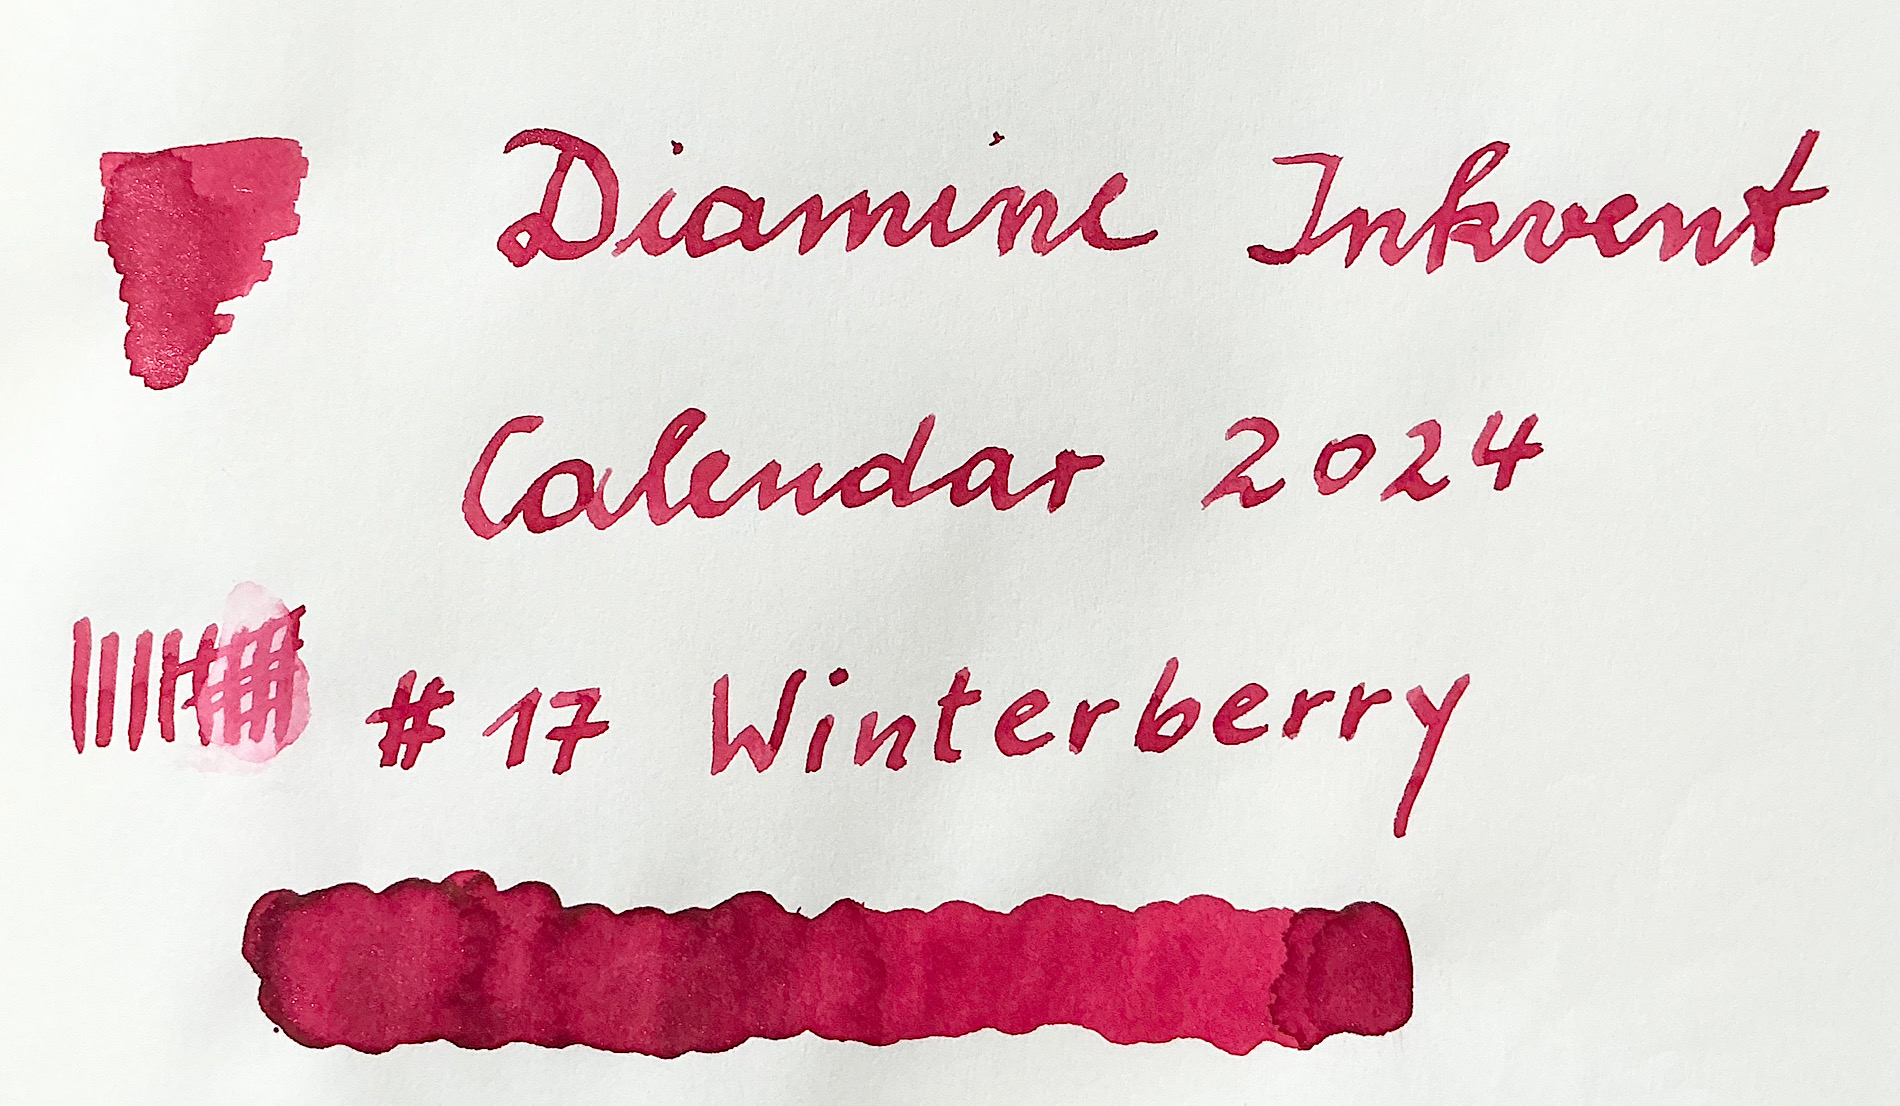 Diamine Inkvent
Calendar 2024
# 17 Winterberry